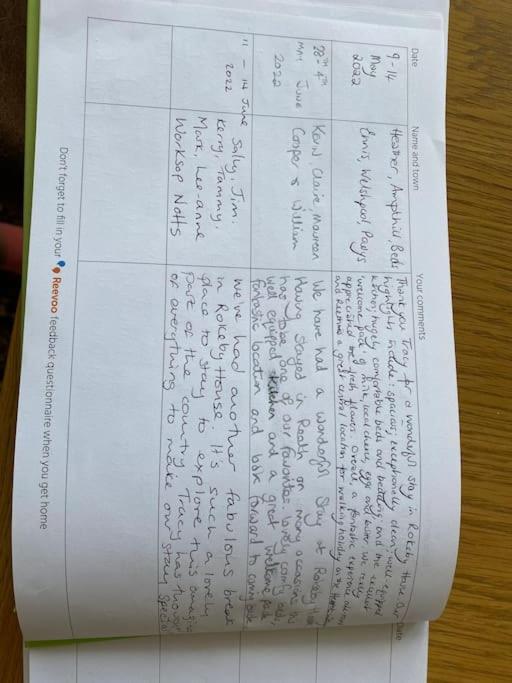 Date Name and town Your comments
9 - 14 Heather, Ampthill, Beds Thank you Tracy for a wonderful stay in Rokeby House. Our
May Ennis, Welshpool, Powys highlights include: spacious, exceptionally clean, well-equipped
2022 kitchen; hugely comfortable beds and bedding and the
welcome pack of milk, local cheese, eggs and butter. We really
appreciated the fresh flowers. Overall, a fantastic experience
and a great central location for walking holiday
28TH - 4TH Kevin, Claire, Maureen We have had a wonderful stay at Rokeby House
MAY JUNE Cooper & William Having stayed in Reeth on many occasions this
2022 has to be one of our favourites. lovely comfy beds,
well equipped kitchen and a great welcome pack,
fantastic location and look forward to coming back.
11 - 14 June Sally, Jim. We've had another fabulous break
2022 Kerry, Tammy, in Rokeby House. It's such a lovely
Mark, Lee-anne place to stay to explore this amazing
Worksop Notts part of the country. Tracy has thought
of everything to make our stay special
Don't forget to fill in your Reevoo feedback questionnaire when you get home
Date